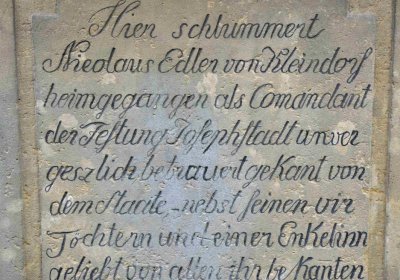 Hier schlummert
Nicolaus Edler von Kleindorf
heimgegangen als Comandant
der Festung Josephstadt unver
geszlich betrauert gekant von
dem Staate, nebst seinen vir
Töchtern und einer Enkelinn
geliebt von allen ihr bekanten